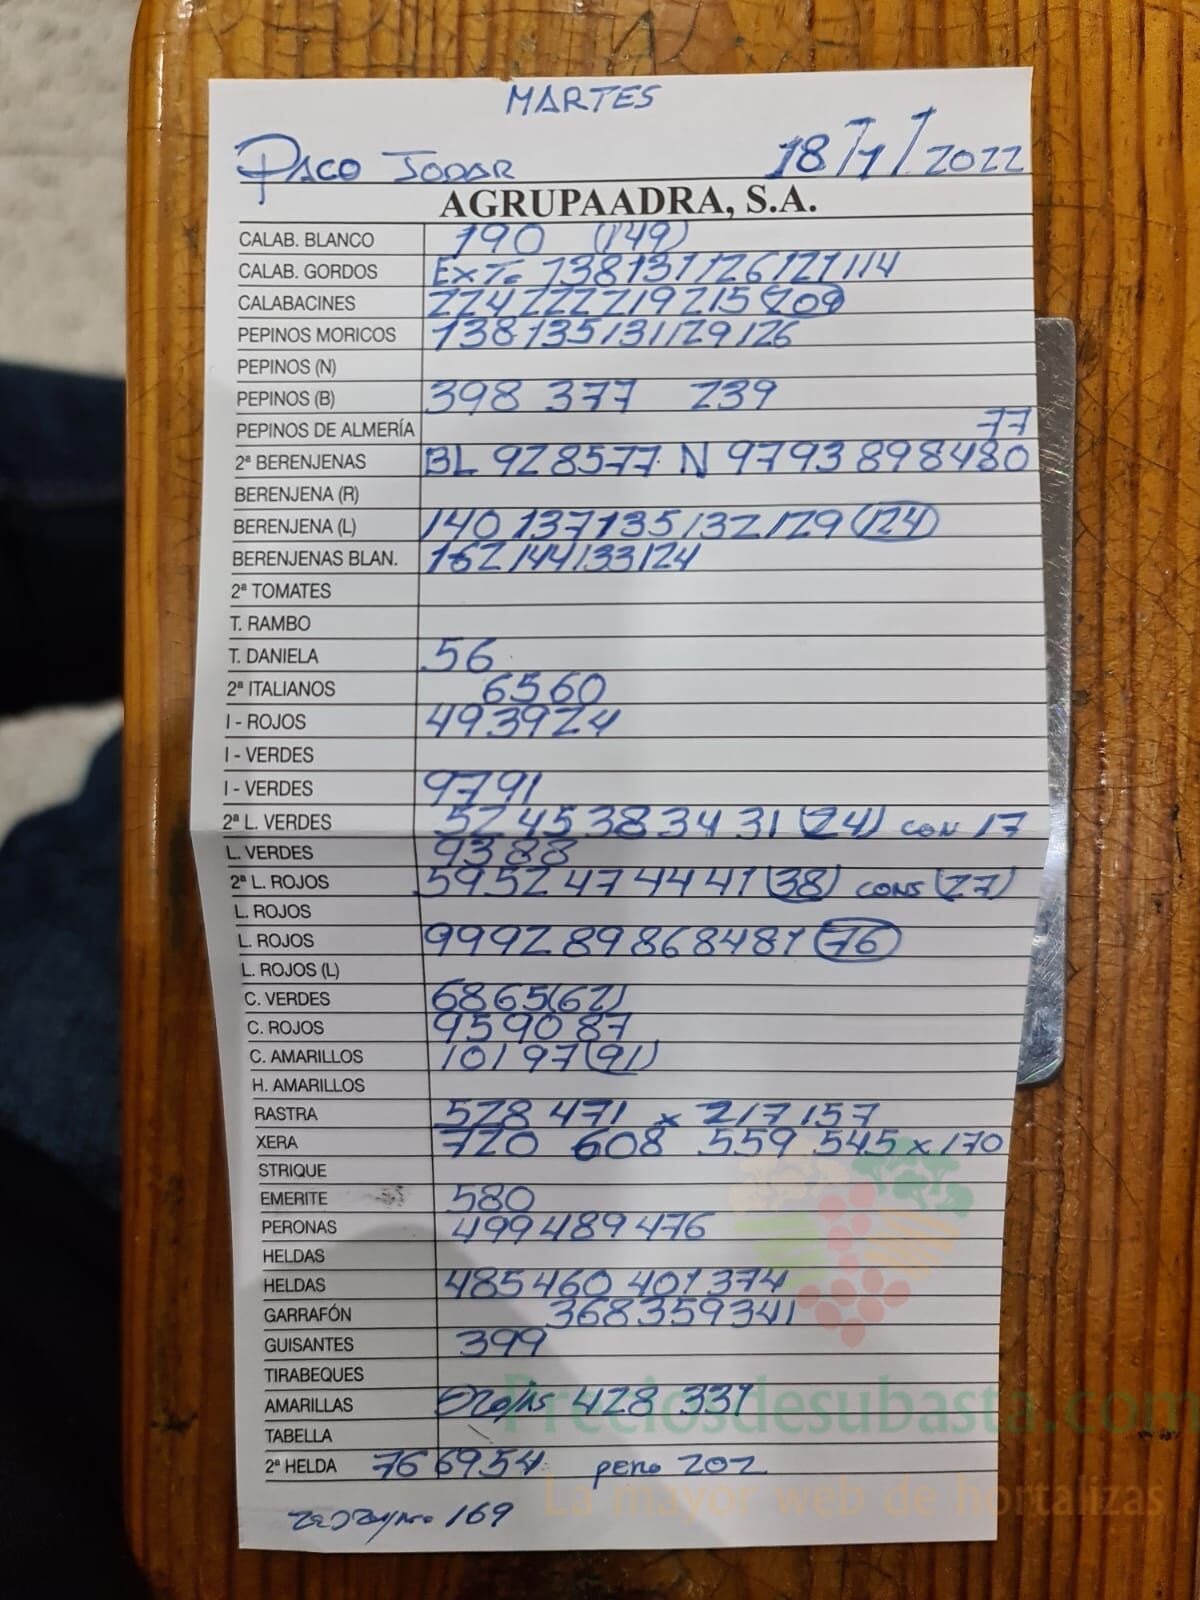 MARTES
PACO JODAR 18/1/2022
AGRUPAADRA, S.A.
CALAB. BLANCO 190 (149)
CALAB. GORDOS EXT. 138 131 126 121 114
CALABACINES 224 222 219 215 (209)
PEPINOS MORICOS 138 135 131 129 126
PEPINOS (N)
PEPINOS (B) 398 377 239
PEPINOS DE ALMERÍA 77
2ª BERENJENAS BL 92 85 77 N 97 93 89 84 80
BERENJENA (R)
BERENJENA (L) 140 137 135 132 129 (124)
BERENJENAS BLAN. 162 144 133 124
2ª TOMATES
T. RAMBO
T. DANIELA 56
2ª ITALIANOS 65 60
I - ROJOS 49 39 24
I - VERDES
I - VERDES 97 91
2ª L. VERDES 52 45 38 34 31 (24) CON 17
L. VERDES 93 88
2ª L. ROJOS 59 52 47 44 41 (38) CONS (27)
L. ROJOS
L. ROJOS 99 92 89 86 84 81 (76)
L. ROJOS (L)
C. VERDES 68 65 (62)
C. ROJOS 95 90 87
C. AMARILLOS 101 97 (91)
H. AMARILLOS
RASTRA 528 471 x 217 157
XERA 720 608 559 545 x 170
STRIQUE
EMERITE 580
PERONAS 499 489 476
HELDAS
HELDAS 485 460 401 374
GARRAFÓN 368 359 341
GUISANTES 399
TIRABEQUES
AMARILLAS 428 331
TABELLA
2ª HELDA 76 69 54 pero 202
169
Preciosdesubasta.com
La mayor web de hortalizas